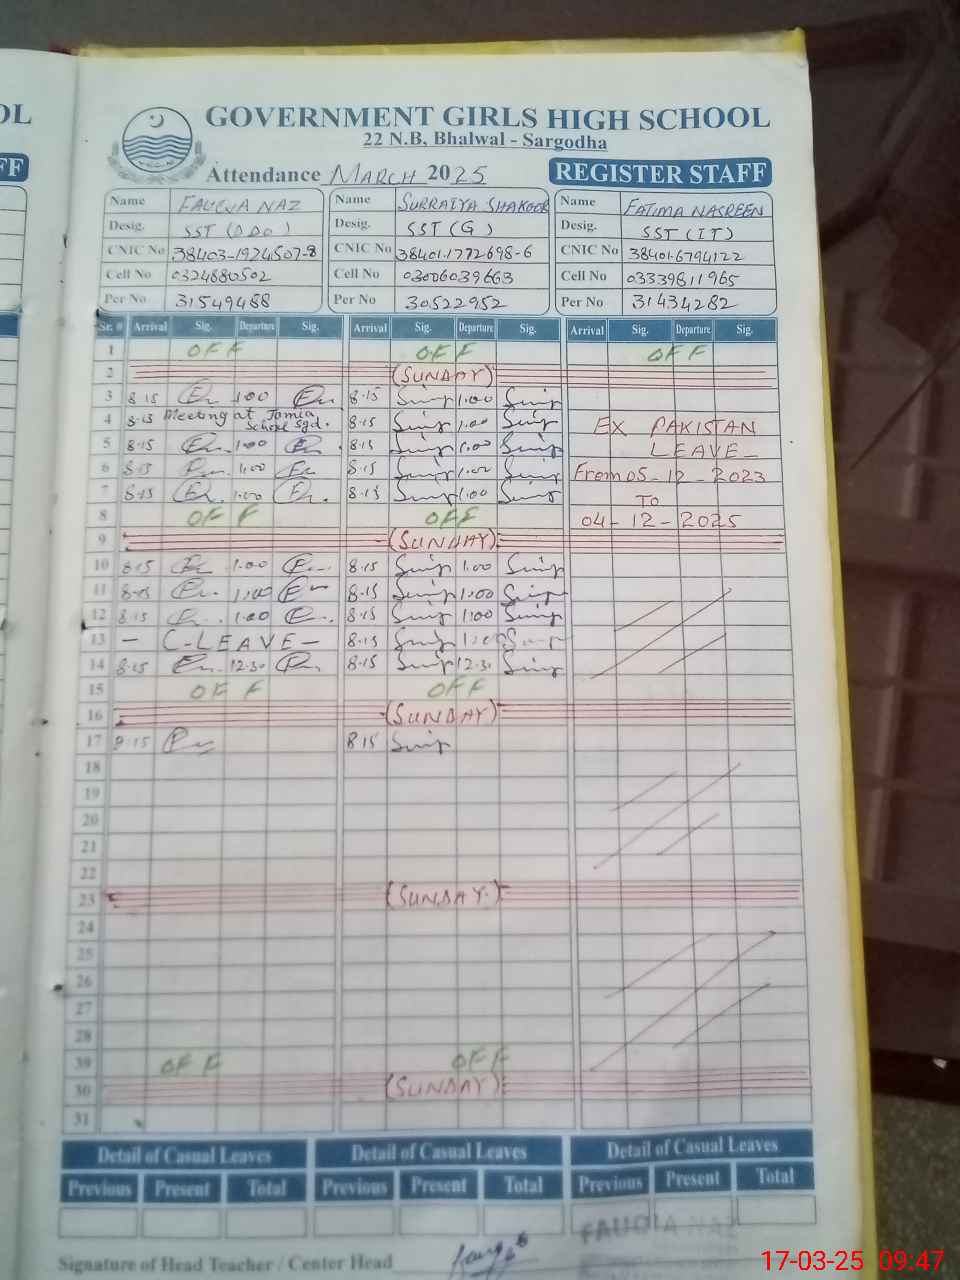 OL
FF
GOVERNMENT GIRLS HIGH SCHOOL
22 N.B, Bhalwal - Sargodha
Attendance MARCH 2025 REGISTER STAFF
Name FAUQIA NAZ Name SURRAIYA SHAKOOR Name FATIMA NASREEN
Desig. SST (DDO) Desig. SST (G) Desig. SST (IT)
CNIC No 38403-1924507-8 CNIC No 38401-1772698-6 CNIC No 38401-6794122
Cell No 0324880502 Cell No 03006039663 Cell No 03339811965
Per No 31549488 Per No 30522952 Per No 31434282
Sr. # Arrival Sig. Departure Sig. Arrival Sig. Departure Sig. Arrival Sig. Departure Sig.
1 OFF OFF OFF
2 (SUNDAY)
3 8.15 1.00 8.15 1.00
4 8.15 Meeting at Jamia School Sgd. 8.15 1.00 EX PAKISTAN
5 8.15 1.00 8.15 1.00 LEAVE
6 8.15 1.00 8.15 1.00 From 05-12-2023
7 8.15 1.00 8.15 1.00 TO
8 OFF OFF 04-12-2025
9 (SUNDAY)
10 8.15 1.00 8.15 1.00
11 8.15 1:00 8.15 1:00
12 8.15 1.00 8.15 1:00
13 - C-LEAVE - 8.15 1:00
14 8.15 12.30 8.15 12.30
15 OFF OFF
16 (SUNDAY)
17 8.15 8.15
18
19
20
21
22
23 (SUNDAY)
24
25
26
27
28
39 OFF OFF
30 (SUNDAY)
31
Detail of Casual Leaves Detail of Casual Leaves Detail of Casual Leaves
Previous Present Total Previous Present Total Previous Present Total
FAUQIA NAZ
Signature of Head Teacher / Center Head
17-03-25 09:47